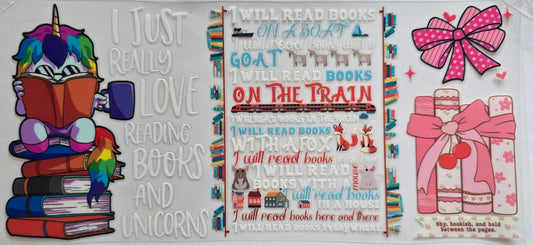 I JUST
REALLY
LOVE
READING
BOOKS
AND
UNICORNS
I WILL READ BOOKS
ON A BOAT
I will read books with a
GOAT
I WILL READ BOOKS
ON THE TRAIN
I WILL READ BOOKS IN THE
I WILL READ BOOKS
WITH A FOX
I will read books
I WILL READ
BOOKS WITH A
mouse
I WILL READ BOOKS
IN A HOUSE
I will read books here and there
I WILL READ BOOKS EVERYWHERE
Shy, bookish, and bold
between the pages.